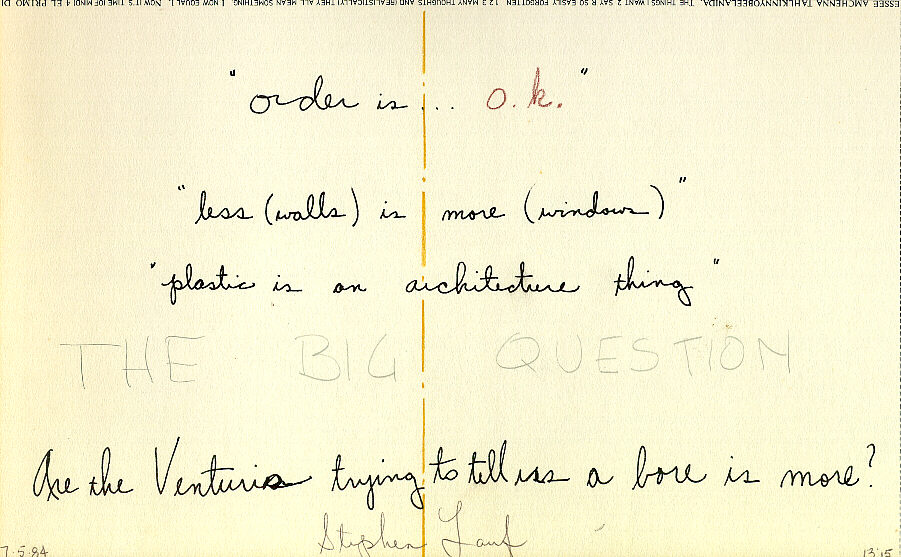 THE THINGS I WANT 2 SAY R SO EASILY FORGOTTEN 1 2 3 MANY THOUGHTS AND (REALISTICALLY) THEY ALL MEAN SOMETHING. NOW IT'S TIME (OF MIND) 4 EL PRIMO DI
"order is... o.k."
"less (walls) is more (windows)"
"plastic is an architecture thing"
THE BIG QUESTION
Are the Venturis trying to tell us a bore is more?
Stephen Lauf
7.5.84 13:15